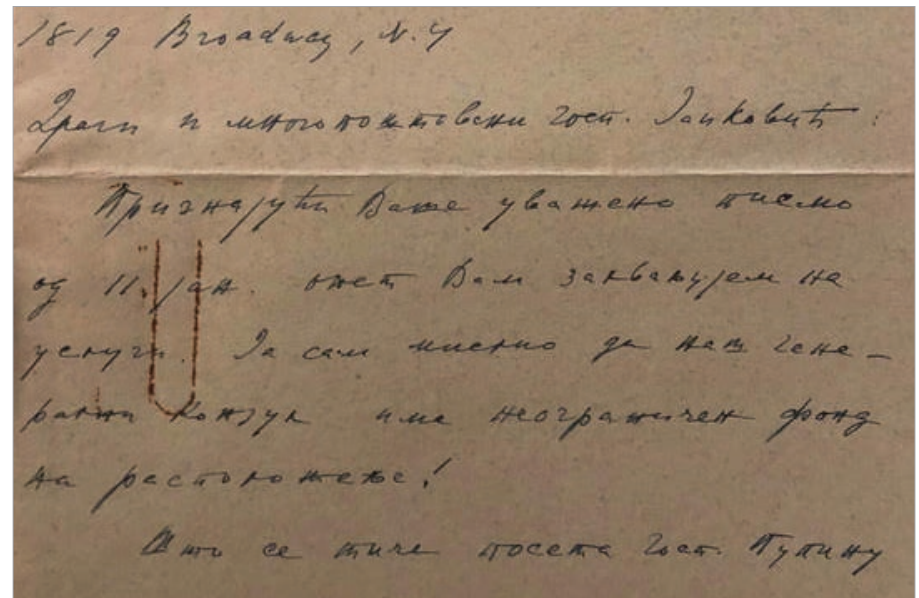 1819 Broadway, N.Y
Драги и многопоштовани госп. Јанковић:
Признајући Ваше уважено писмо
од 11. јан. опет Вам захваљујем на
услуги. Ја сам мислио да наш гене-
рални Конзул има неограничен фонд
на расположење!
Што се тиче посета Госп. Пупину